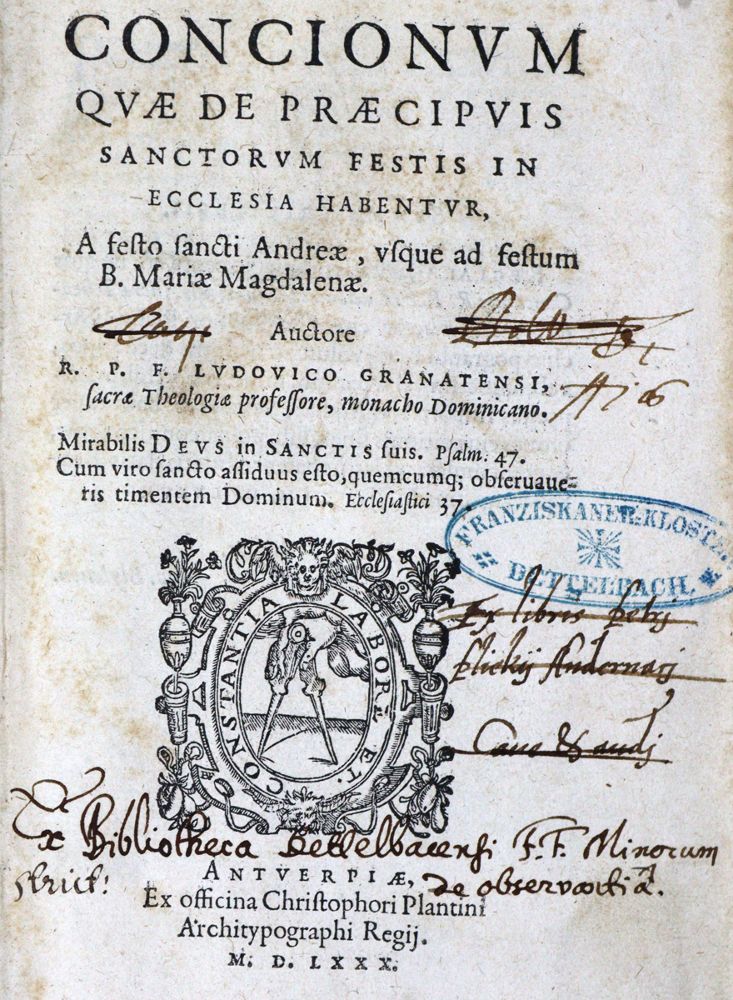 CONCIONVM
QVÆ DE PRÆCIPVIS
SANCTORVM FESTIS IN
ECCLESIA HABENTVR,
A festo sancti Andreæ, vsque ad festum
B. Mariæ Magdalenæ.
Auctore
R. P. F. LVDOVICO GRANATENSI,
sacræ Theologiæ professore, monacho Dominicano.
Mirabilis DEVS in SANCTIS suis. Psalm. 47.
Cum viro sancto assiduus esto, quemcumq; obseruaue-
ris timentem Dominum. Ecclesiastici 37.
FRANZISKANER-KLOSTER
DETTELBACH.
Ex libris
LABORE ET CONSTANTIA
Ex Bibliotheca Dettelbacensi F.F. Minorum
strict: de observantia.
ANTVERPIÆ,
Ex officina Christophori Plantini
Architypographi Regij.
M. D. LXXX.